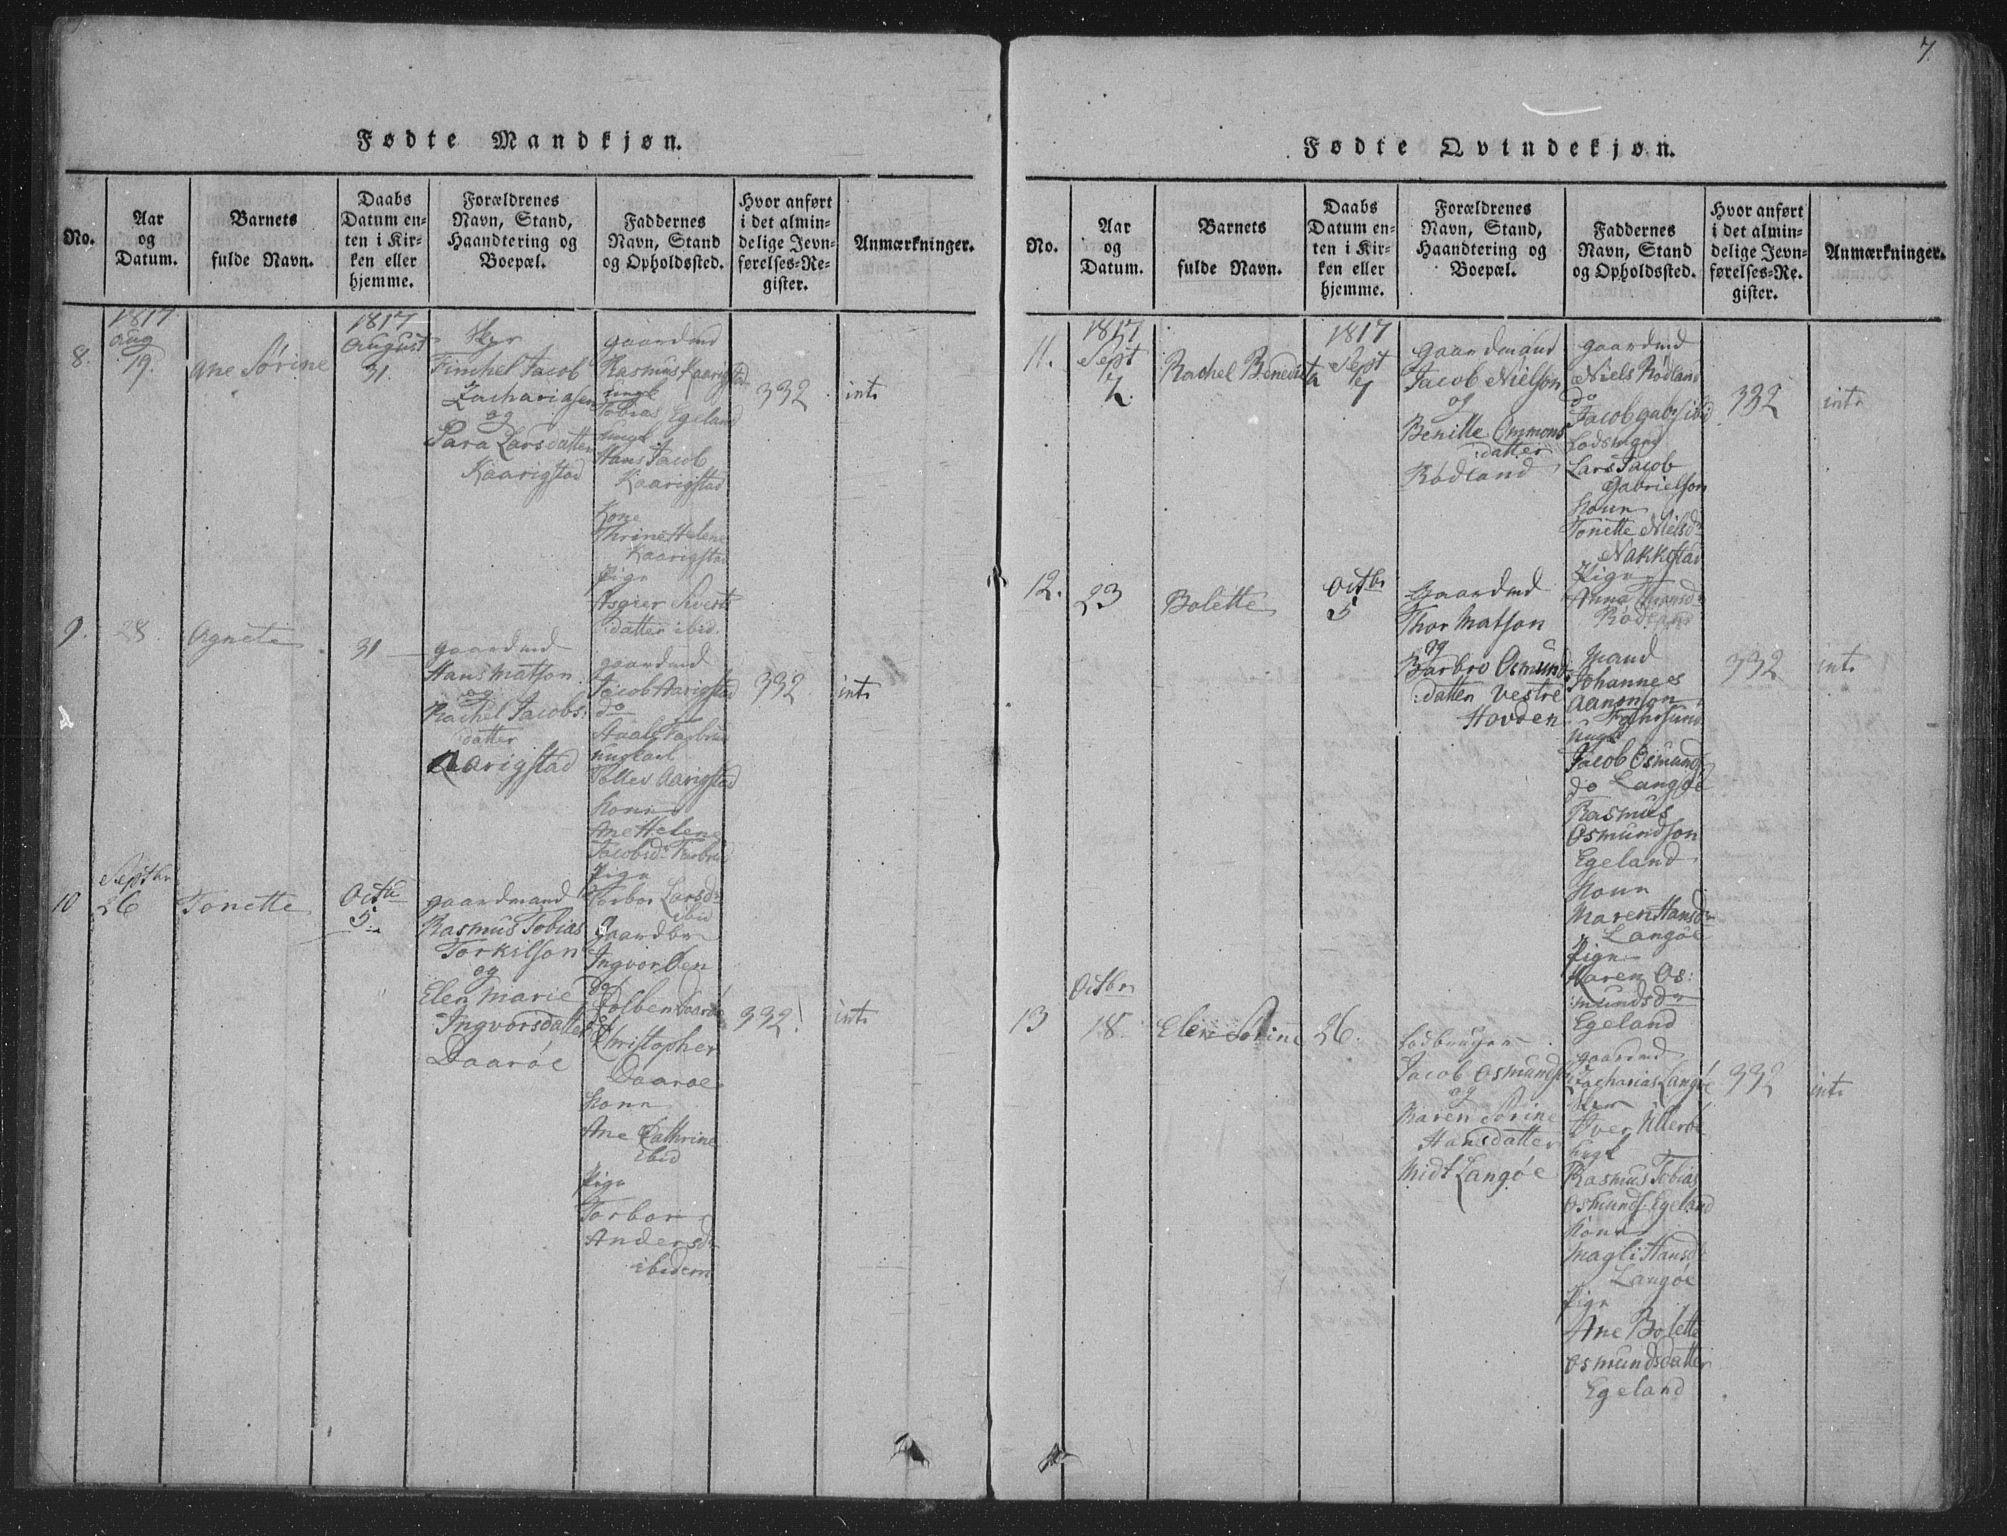 7.
Fødte Mandkjøn.
No.
Aar
og
Datum.
Barnets
fulde Navn.
Daabs
Datum en-
ten i Kir-
ken eller
hjemme.
Forældrenes
Navn, Stand,
Haandtering og
Boepæl.
Faddernes
Navn, Stand
og Opholdssted.
Hvor anført
i det almin-
delige Jevn-
førelses-Re-
gister.
Anmærkninger.
8.
1817
Aug
19.
Ane Sørine
1817
August
31.
Jacob
Zachariasen
og
Sara Larsdatter
Kaarigstad
gaardmd
Rasmus Kaarigstad
Tobias Egeland
Hans Jacob
Kaarigstad
Kone
Thrine Helene
Kaarigstad
Pige
Asgier Siverts
datter ibid.
332
int.
9.
28.
Agnete
31
gaardmd
Hans Matson
og
Rachel Jacobs:
datter
Aarigstad
gaardmd
Jacob Aarigstad
do
ungkarl
Tolles Aarigstad
Kone
Ane Helene
Jacobsd.
Pige
Torbor Larsd.
ibid
332
int.
10
Septbr
26
Tonette
Octb
5.
gaardmand
Rasmus Tobias
Torkilson
og
Elen Marie
Ingvorsdatter
Daarøe
gaardbr
Ingvor Oen
do
Daarøe
Christopher
Daarøe
Kone
Ane Cathrine
ibid
Pige
Torbor
Andersd.
ibidem
332.
int.
Fødte Qvindekjøn.
No.
Aar
og
Datum.
Barnets
fulde Navn.
Daabs
Datum en-
ten i Kir-
ken eller
hjemme.
Forældrenes
Navn, Stand,
Haandtering og
Boepæl.
Faddernes
Navn, Stand
og Opholdssted.
Hvor anført
i det almin-
delige Jevn-
førelses-Re-
gister.
Anmærkninger.
11.
1817
Sept
7.
Rachel Benedicta
1817
Sept
7
gaardmand
Jacob Nielson
og
Benitte Ommons
datter
Rødland
gaardmd
Niels Rødland
do
Jacob Gabr. ibid
Lars Jacob
Gabrielson
Kone
Tonette Nielsd.
Nakkestad
Pige
Anna Hansd.
Rødland
332
int.
12.
23
Bolette
Octbr
5
Gaardmd
Thor Matson
og
Barbro Osmund
datter Vestre
Hovden
Mand
Johannes
Aanonson
Farsund
ungk
Jacob Osmunds
do Langøe
Rasmus
Osmundson
Egeland
Kone
Maren Hansd.
Langøe
Pige
Karen Os:
mundsd.
Egeland
332
int.
13
Octbr
18.
Elen Sorine
26.
Jacob Osmunds
og
Maren Sorine
Hansdatter
Midt Langøe
gaardmd
Zacharias Langøe
Iver Ullerøe
ungk
Rasmus Tobias
Osmunds Egeland
Kone
Magli Hansd.
Langøe
Pige
Ane Bolette
Osmundsdatter
Egeland
332
int.